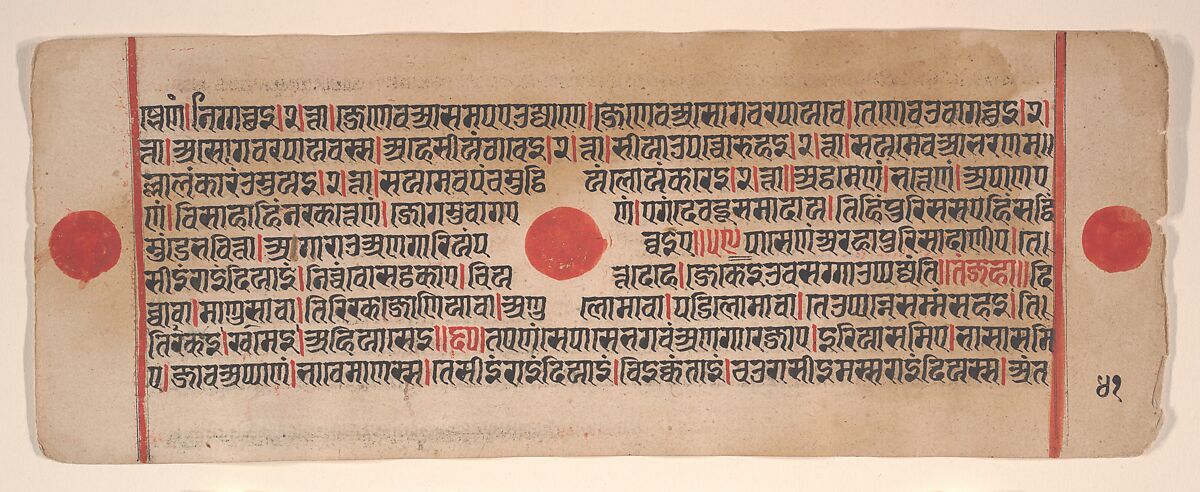 निगच्छइ।२त्ता।जेणेवआसमपएउज्जाणे।जेणेवअसोगवरपायवे।तेणेवउवागच्छइ।२।
त्ता।असोगवरपायवस्स।अहेसीयंठावेइ।२त्ता।सीयाउपच्चोरुहइ।२त्ता।सयमेवआभरणम
ल्लालंकारंउमुयइ।२त्ता।सयमेवपंचमुट्ठि यंलोयंकरेइ।२त्ता॥अट्ठमेणं।भत्तेणं।अपाणए
णं।विसाहाहिंनरकत्तेणं।जोगमुवागए णं।एगंदेवदूसमादाय।तिहिंपुरिससएहिंसद्धिं
मुंडेभवित्ता।आगाराउअणगारियंप व्वइए॥ पासेणंअरहापुरिसादाणीए।ते
सीइंराइंदियाइं।निच्चंवोसट्ठकाए।चिय त्तदेहे।जेकेइउवसग्गाउप्पज्जंति।तंजहा॥दि
व्वावा।माणुसावा।तिरिरकजोणियावा।अणु लोमावा।पडिलोमावा।तेउप्पन्नेसम्मंसहइ।ति
तिरकइ।खमइ।अहियासेइ॥ तएणंसेपासेभगवंअणगारेजाए।इरियासमिए।भासासमि
ए।जावअप्पाणं।भावेमाणस्स।तेसीइंराइंदियाइं।विइक्कंताइं।चउरासीइमस्सराइंदियस्स।अंत
४१